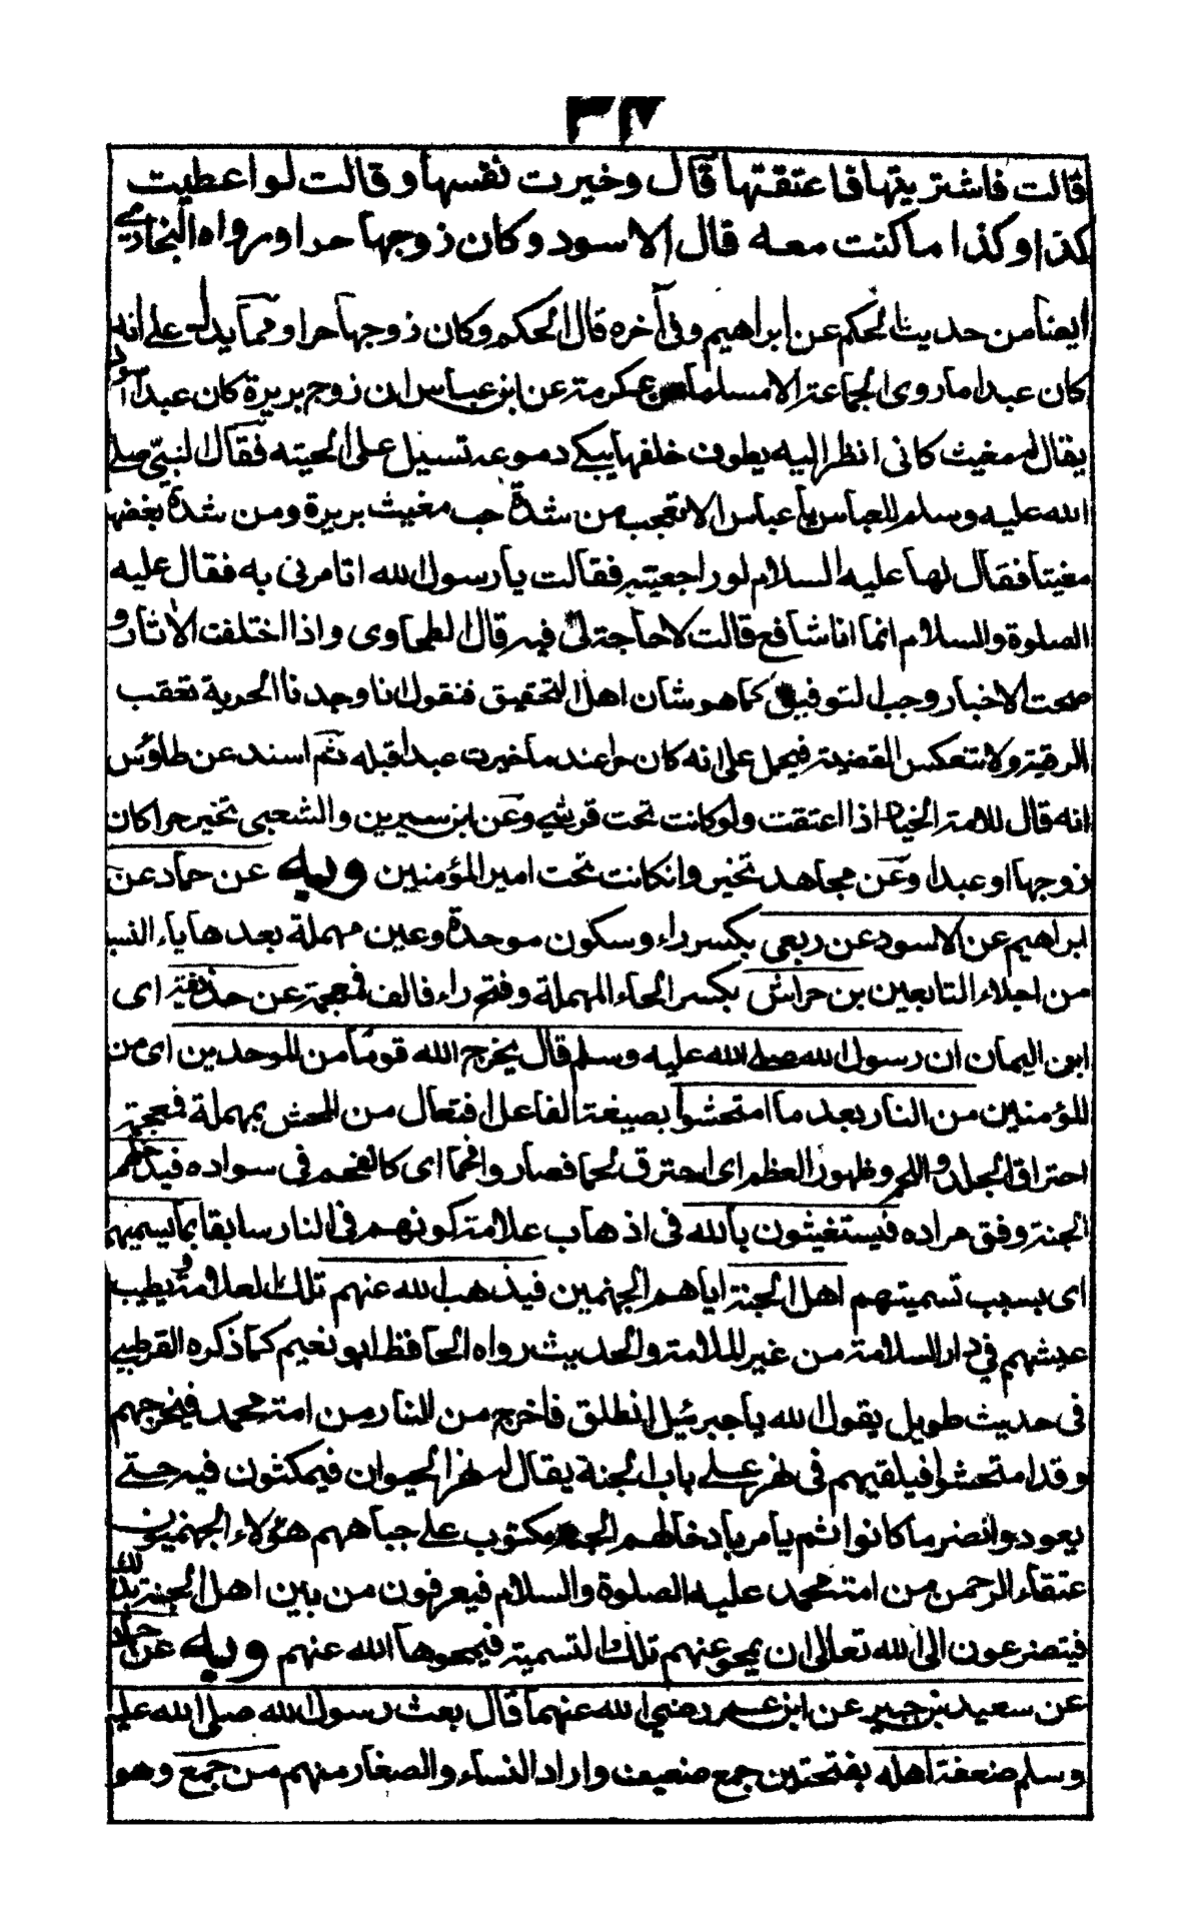 ٣٧
قالت فاشتريتها فاعتقتها قال وخيرت نفسها وقالت لو اعطيت
كذا وكذا ما كنت معه قال الاسود وكان زوجها حرا ورواه البخاري
ايضا من حديث الحكم عن ابراهيم وفى آخره قال الحكم وكان زوجها حرا ومما يدل على انه
كان عبدا ما روى الجماعة الا مسلما عن عكرمة عن ابن عباس ان زوج بريرة كان عبدا اسود
يقال له مغيث كانى انظر اليه يطوف خلفها يبكے دموعه تسيل على لحيته فقال النبي صلے
الله عليه وسلم للعباس يا عباس الا تعجب من شدة حب مغيث بريرة ومن شدة بغضها
مغيثا فقال لها عليه السلام لو راجعتيه فقالت يا رسول الله اتامرنى به فقال عليه
الصلوة والسلام انما انا شافع قالت لا حاجة لى فيه قال الطحاوى واذا اختلفت الاثار و
صحت الاخبار وجب التوفيق كما هو شان اهل التحقيق فنقول انا وجدنا الحرية تعقب
الرقية ولا تنعكس القضية فيحمل على انه كان حرا عند ما خيرت عبدا قبله ثم اسند عن طاؤس
انه قال للامة الخيار اذا اعتقت ولو كانت تحت قرشي وعن ابن سيرين والشعبى تخير حرا كان
زوجها او عبدا وعن مجاهد تخير وان كانت تحت امير المؤمنين وبه عن حماد عن
ابراهيم عن الاسود عن ربعى بكسر راء وسكون موحدة وعين مهملة بعدها ياء النسبة
من اجلاء التابعين بن حراش بكسر الحاء المهملة وفتح راء فالف فمعجمة عن حذيفة اى
ابن اليمان ان رسول الله صلے الله عليه وسلم قال يخرج الله قوما من الموحدين اى من
المؤمنين من النار بعد ما امتحشوا بصيغة الفاعل افتعال من المحش بمهملة فمعجمة
احتراق الجلد واللحم وظهور العظم اى احترق لحما فصاروا فحما اى كالفحم فى سواده فيدخلهم
الجنة وفق مراده فيستغيثون بالله فى اذهاب علامة كونهم فى النار سابقا بما يسميهم
اى بسبب تسميتهم اهل الجنة اياهم الجهنمين فيذهب الله عنهم تلك العلامة و يطيب
عيشهم في دار السلامة من غير الملامة والحديث رواه الحافظ ابو نعيم كما ذكره القرطبے
فى حديث طويل يقول الله يا جبرئيل انطلق فاخرج من النار من امة محمد فيخرجهم
وقد امتحشوا فيلقيهم فى نهر علے باب الجنة يقال له نهر الحيوان فيمكثون فيه حتے
يعودوا انضر ما كانوا ثم يامر بادخالهم الجنة مكتوب علے جباههم هؤلاء الجهنميون
عتقاء الرحمن من امة محمد عليه الصلوة والسلام فيعرفون من بين اهل الجنة بذلك
فيتضرعون الى الله تعالى ان يمحو عنهم تلك التسمية فيمحوها الله عنهم وبه عن حماد
عن سعيد بن جبير عن ابن عمر رضي الله عنهما قال بعث رسول الله صلى الله عليه
وسلم ضعفة اهله بفتحتين جمع ضعيف واراد النساء والصغار منهم من جمع وهو